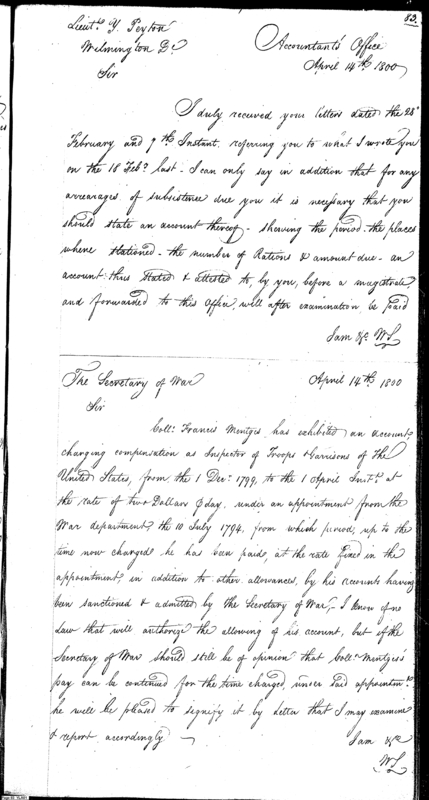 83.
Lieut. Y. Peyton
Wilmington De
Sir
Accountant's Office
April 14th 1800
I duly received your letters dated the 24
February and 9th Instant, referring you to what I wrote you
on the 18 Feby last. I can only say in addition that for any
arrearages of subsistence due you it is necessary that you
should state an account thereof - shewing the period - the places
where stationed - the number of Rations & amount due - an
account thus stated & attested to by you, before a magistrate,
and forwarded to this Office, will after examination be paid
I am &c WS
The Secretary of War
April 14th 1800
Sir
Coll. Francis Mentges has exhibited an account,
charging compensation as Inspector of Troops & Garrisons of the
United States, from the 1 Decr 1799, to the 1 April Inst. at
the rate of two Dollars P day, under an appointment from the
War department the 10 July 1794, from which period, up to the
time now charged he has been paid, at the rate fixed in the
appointment, in addition to other allowances, by his accounts having
been sanctioned & admitted by the Secretary of War, - I know of no
Law that will authorize the allowing of his account, but if the
Secretary of War should still be of opinion that Coll. Mentges's
pay can be continued for the time charged, under said appointmt
he will be pleased to signify it by Letter that I may examine
& report accordingly
I am &c
WS